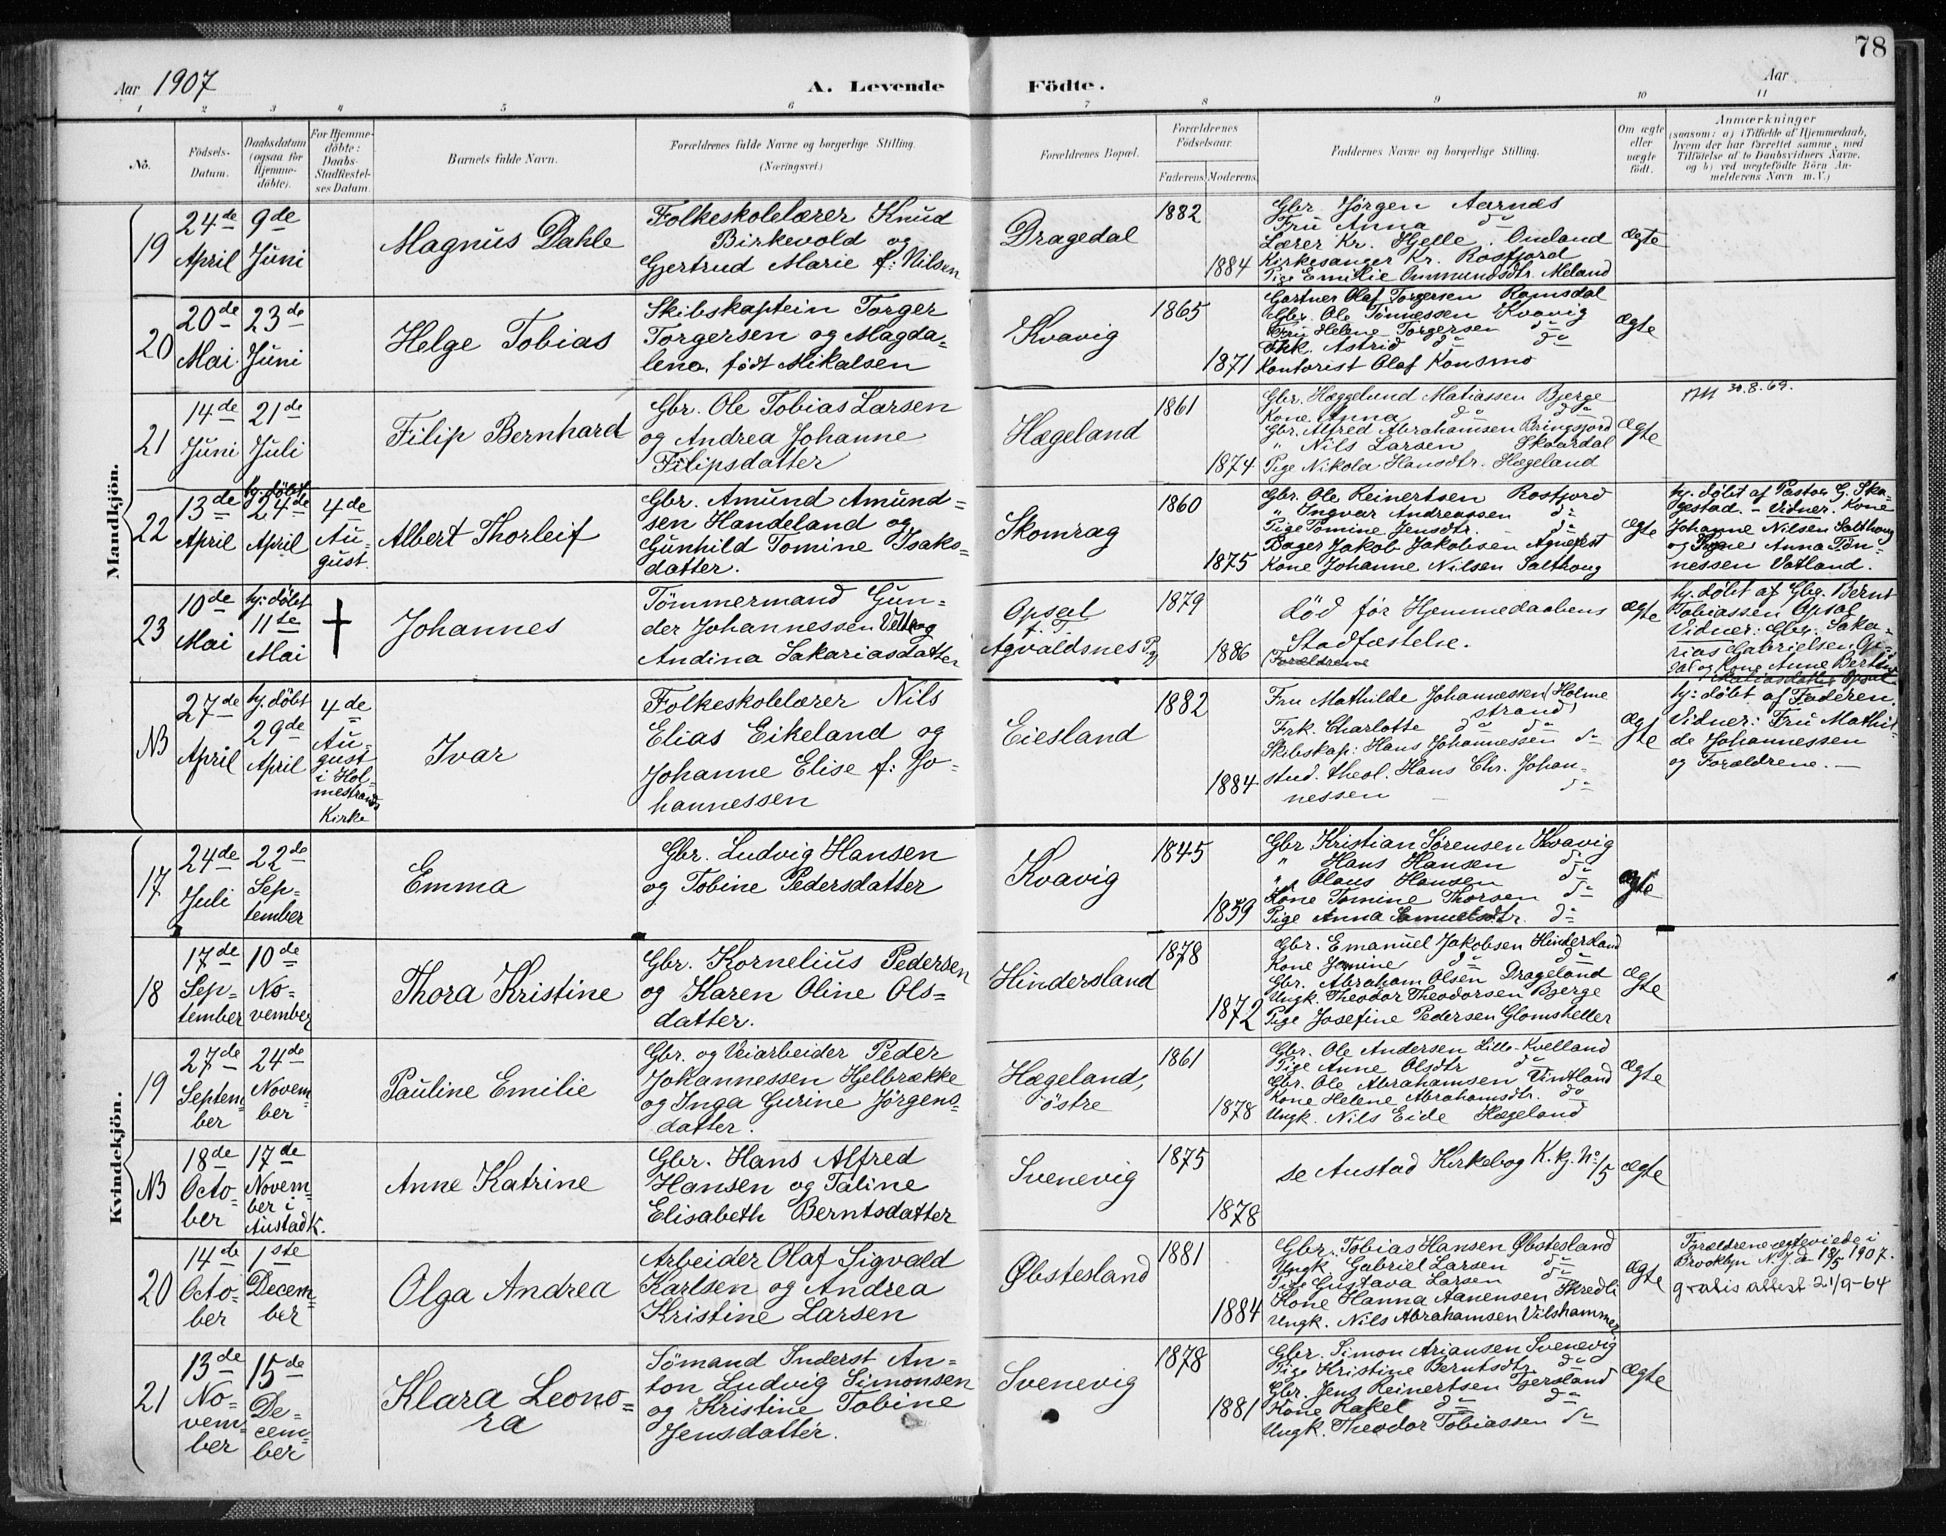 78
Aar 1907
A. Levende Födte.
Aar
1 2 3 4 5 6 7 8 9 10 11
No.
Födsels-Datum.
Daabsdatum (ogsaa for Hjemmedöbte).
For Hjemmedöbte: Daabs-Stadfæstelses Datum.
Barnets fulde Navn.
Forældrenes fulde Navne og borgerlige Stilling. (Næringsvei.)
Forældrenes Bopæl.
Forældrenes Födselsaar.
Faderens. Moderens.
Faddernes Navne og borgerlige Stilling.
Om ægte eller uægte födt.
Anmærkninger
(saasom: a) i Tilfælde af Hjemmedaab,
hvem der har forrettet samme, med
Tilföielse af to Daabsvidners Navne,
og b) ved uægtefödte Börn An-
melderens Navn m. V.)
Mandkjön.
19
24de April
9de Juni
Magnus Dahle
Folkeskolelærer Knud
Birkevold og
Gjertrud Marie f: Nilsen
Dragedal
1882
1884
Gbr. Jørgen Aarnæs
Fru Anna do
Lærer Kr. Hjelle. Omland
Kirkesanger Kr. Rosfjord
Pige Emilie Ommundsdtr. Meland
ægte
20
20de Mai
23de Juni
Helge Tobias
Skibskaptein Torger
Torgersen og Magda-
lena, født Mikalsen
Kvavig
1865
1871
Gartner Olaf Torgersen Ramsdal
Gbr. Ole Tønnessen Kvavig
Fru Helene Torgersen do
Frk. Astrid do do
Kontorist Olaf Konsmo
Ægte
21
14de Juni
21de Juli
Filip Bernhard
Gbr. Ole Tobias Larsen
og Andrea Johanne
Filipsdatter
Hægeland
1861
1874
Gbr. Hæggelund Matiassen Bjerge
Kone Anna do do
Gbr. Alfred Abrahamsen Bringsjord
" Nils Larsen Skaardal
Pige Nikola Hansdtr. Hægeland
Ægte
30.8.69.
22
13de April
hj. døbt
24de April
4de Au-
gust.
Albert Thorleif
Gbr. Amund Amund-
sen Handeland og
Gunhild Tomine Isaks-
datter.
Skomrag
1860
1875
Gbr. Ole Reinertsen Rosfjord
" Ingvar Andreassen do
Pige Tomine Jensdtr. do
Bager Jakob Jakobsen Agnefest
Kone Johanne Nilsen Salthoug
Ægte
hj. døbt af Pastor G. Ska-
gestad. - Vidner: Kone
Johanne Nilsen Salthoug
og Pige Anna Tøn-
nessen Vatland.
23
10de Mai
hj: døbt
11te Mai
†
Johannes
Tømmermand Gun-
der Johannessen og
Andina Sakariasdatter
Opsal
f. T.
Agvaldsnes
1879
1886
død før Hjemmedaabens
Stadfæstelse.
Forældrene
Ægte
hj. døbt af Gbr. Bernt
Tobiassen Opsal
Vidner: Gbr. Saka-
rias Gabrielsen Op-
sal og Kone Anne
NB
27de April
hj. døbt
29de April
4de Au-
gust
i Hol-
mestrands
Kirke
Ivar
Folkeskolelærer Nils
Elias Eikeland og
Johanne Elise f: Jo-
hannessen
Eiesland
1882
1884
Fru Mathilde Johannessen (Holme
strand)
Frk. Charlotte do do
Skibskap: Hans Johannessen do
stud. theol. Hans Chr. Johan-
nessen do
Ægte
hj: døbt af Faderen.
Vidner: Fru Mathil-
de Johannessen
og Forældrene. -
Kvindekjön.
17
24de Juli
22de Sep-
tember
Emma
Gbr. Ludvig Hansen
og Tobine Pedersdatter
Kvavig
1845
1859
Gbr Kristian Sørensen Kvavig
" Hans Hansen do
" Olaus Hansen do
Kone Tomine Thorsen do
Pige Anna Samuelsdtr. do
Ægte
18
17de Sep-
tember
10de No-
vember
Thora Kristine
Gbr. Kornelius Pedersen
og Karen Oline Ols-
datter.
Hindersland
1878
1872
Gbr. Emanuel Jakobsen Hindersland
Kone Jemine do do
Gbr. Abraham Olsen Drageland
Ungk. Theodor Theodorsen Bjerge
Pige Josefine Pedersen Glomsheller
Ægte
19
27de Septem-
ber
24de Novem-
ber
Pauline Emilie
Gbr. og Veiarbeider Peder
Johannessen Helbrække
og Inga Gurine Jørgens-
datter.
Hægeland,
østre
1861
1878
Gbr. Ole Andersen Lille-Kvelland
Pige Anne Olsdtr do
Gbr. Ole Abrahamsen Vintland
Kone Helene Abrahamsdtr. do
Ungk. Nils Eide Hægeland
Ægte
NB
18de Octo-
ber
17de Novem-
ber i
Austad K.
Anne Katrine
Gbr. Hans Alfred
Hansen og Taline
Elisabeth Berntsdatter
Svenevig
1875
1878
se Austad Kirkebog K. kj. No 15
Ægte
20
14de Octo-
ber
1ste Decem-
ber
Olga Andrea
Arbeider Olaf Sigvald
Karlsen og Andrea
Kristine Larsen
Øbstesland
1881
1884
Gbr. Tobias Hansen Øbstesland
Ungk. Gabriel Larsen do
Pige Gustava Larsen do
Kone Hanna Aanensen Skredli
Ungk. Nils Abrahamsen Vilshammer
Ægte
Forældrene ægteviede i
Brooklyn N.Y. d. 18/5 1907.
gratis attest 21/9-64
21
13de No-
vem-
ber
15de De-
cem-
ber
Klara Leono-
ra
Sømand Inderst An-
ton Ludvig Simonsen
og Kristine Tobine
Jensdatter.
Svenevig
1878
1881
Gbr. Simon Ariansen Svenevig
Pige Kristine Berntsdtr do
Gbr. Jens Reinertsen Tjersland
Kone Rakel do do
Ungk. Theodor Tobiassen do
Ægte